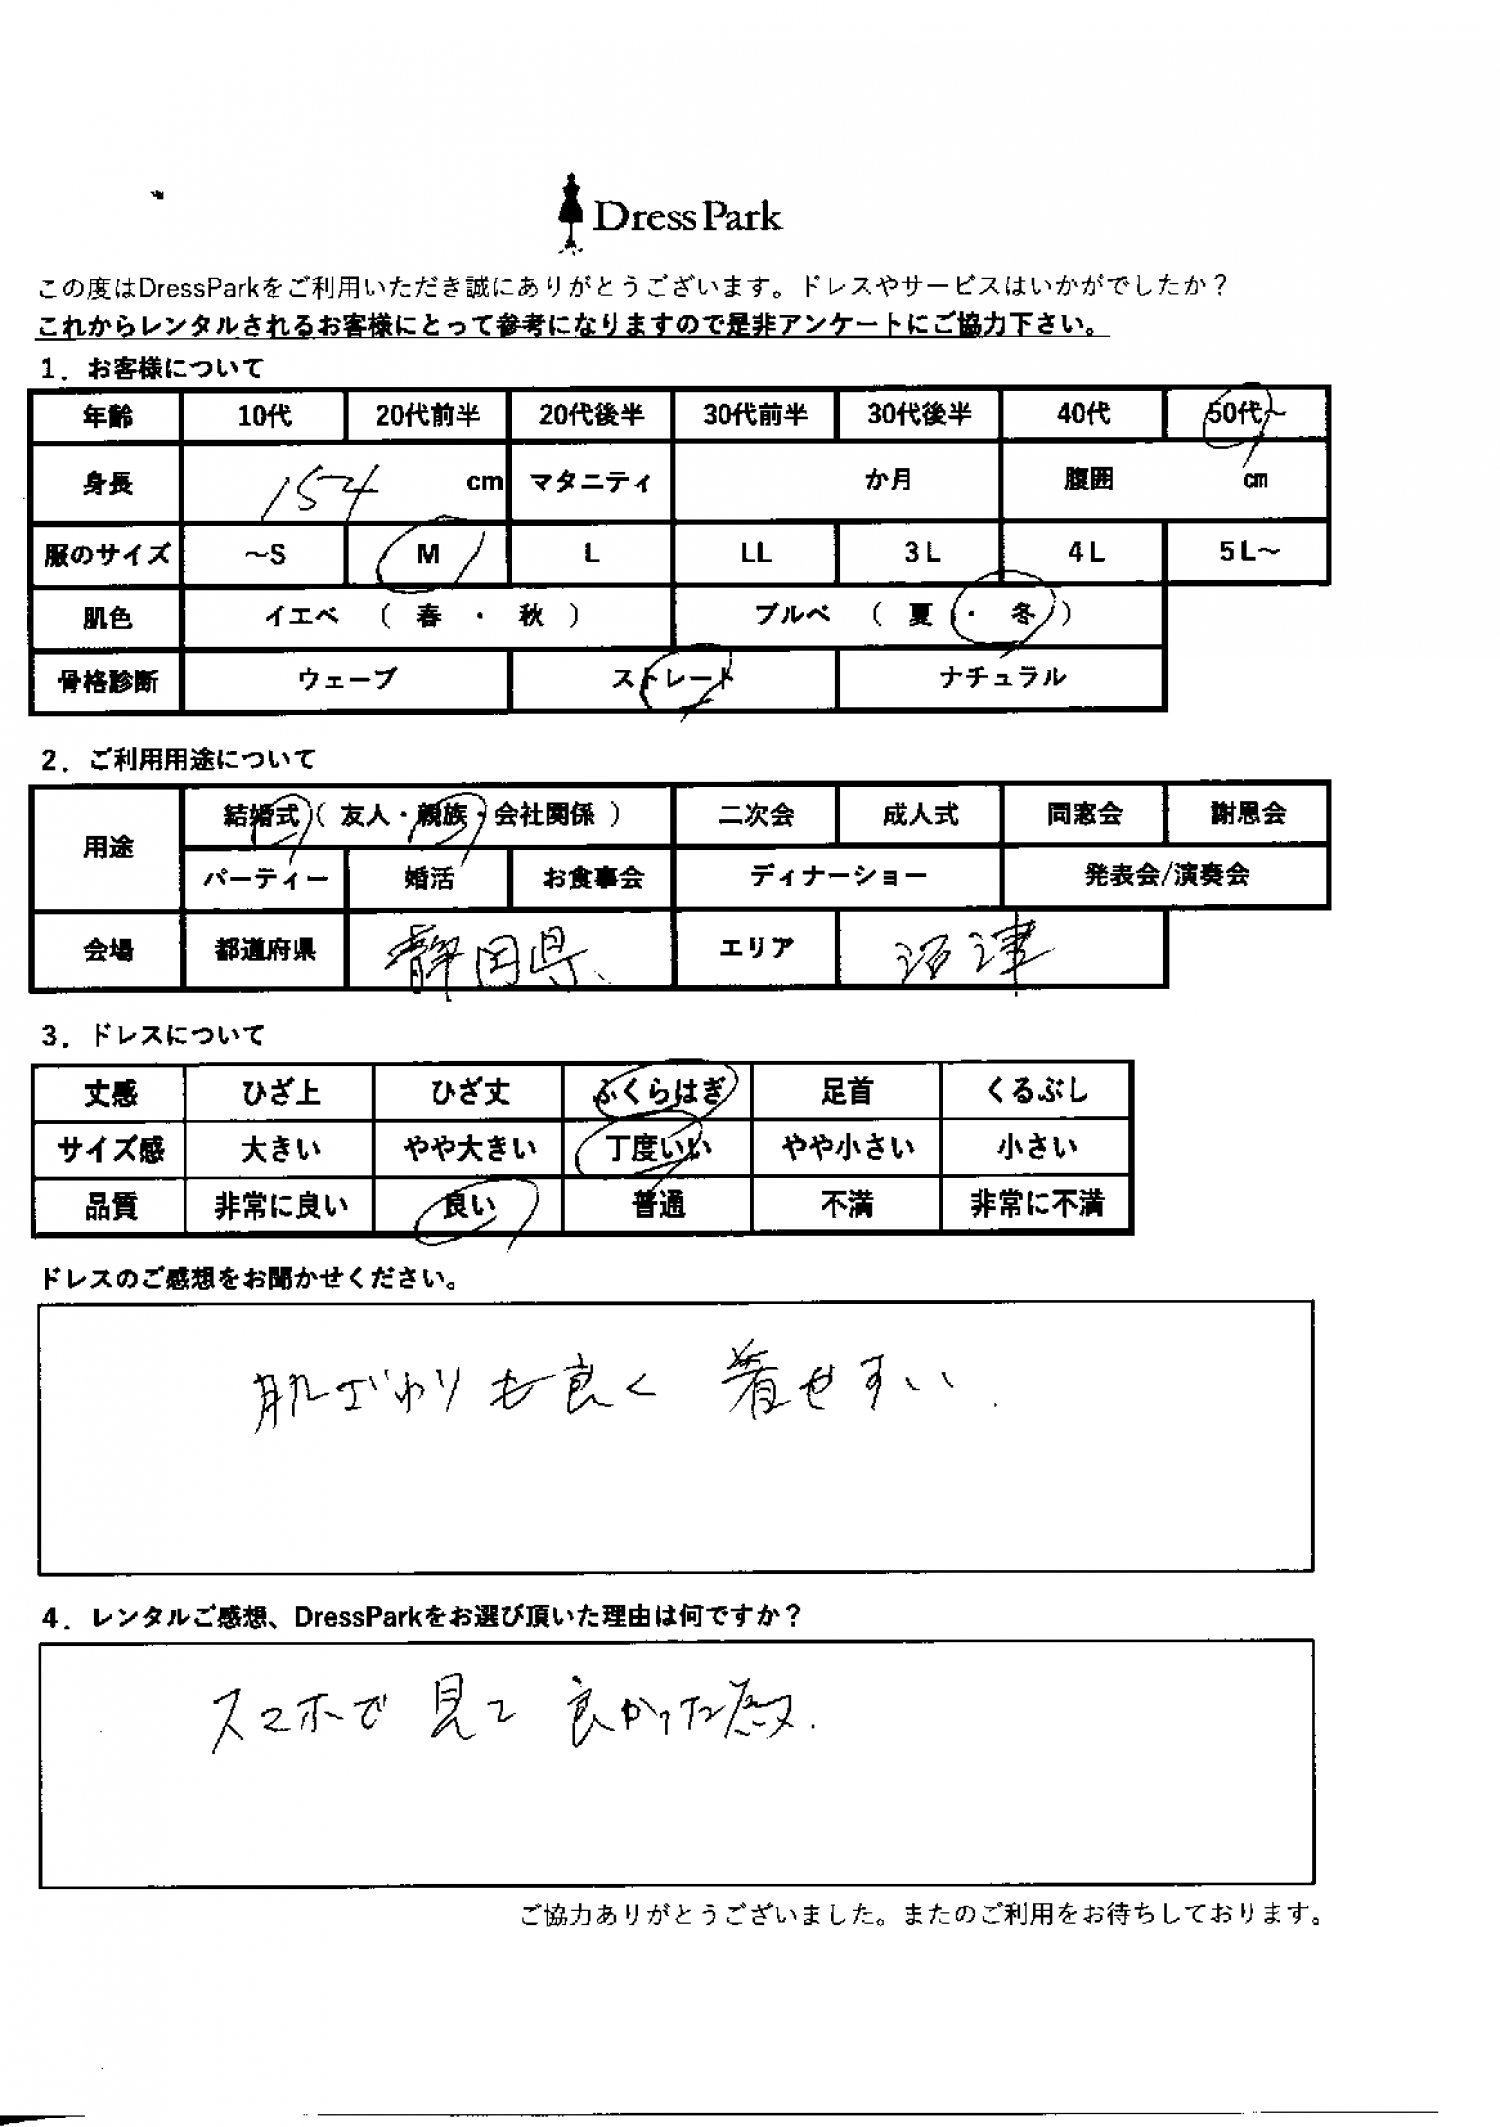 DressPark
この度はDressParkをご利用いただき誠にありがとうございます。ドレスやサービスはいかがでしたか？
これからレンタルされるお客様にとって参考になりますので是非アンケートにご協力下さい。
1．お客様について
年齢 10代 20代前半 20代後半 30代前半 30代後半 40代 50代～
身長 154 cm マタニティ か月 腹囲 cm
服のサイズ ～S M L LL 3L 4L 5L～
肌色 イエベ （ 春 ・ 秋 ） ブルベ （ 夏 ・ 冬 ）
骨格診断 ウェーブ ストレート ナチュラル
2．ご利用用途について
用途 結婚式（ 友人・親族・会社関係 ） 二次会 成人式 同窓会 謝恩会
パーティー 婚活 お食事会 ディナーショー 発表会/演奏会
会場 都道府県 静岡県 エリア 沼津
3．ドレスについて
丈感 ひざ上 ひざ丈 ふくらはぎ 足首 くるぶし
サイズ感 大きい やや大きい 丁度いい やや小さい 小さい
品質 非常に良い 良い 普通 不満 非常に不満
ドレスのご感想をお聞かせください。
肌ざわりも良く 着やすい．
4．レンタルご感想、DressParkをお選び頂いた理由は何ですか？
スマホで 見て 良かった為．
ご協力ありがとうございました。またのご利用をお待ちしております。